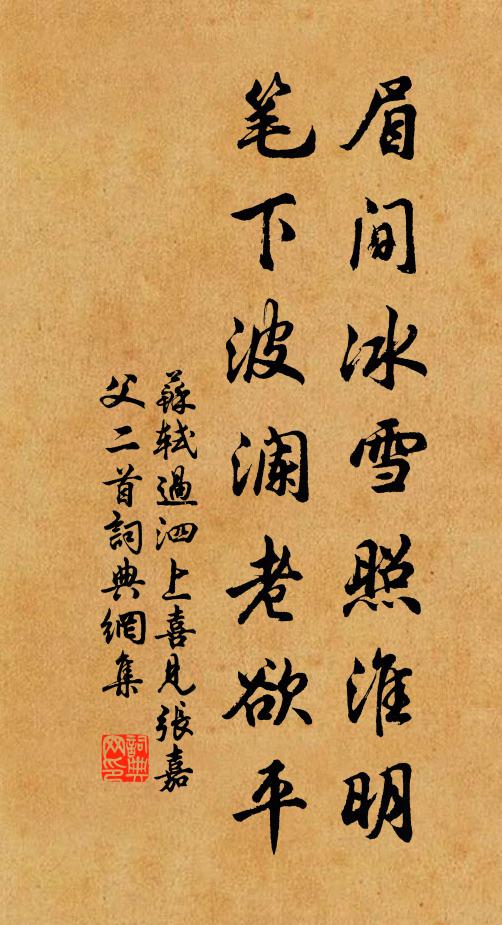 眉间冰雪照淮明
笔下波澜老欲平
蘇軾過泗上喜見張嘉
父二首詞典網集
詞典
网印